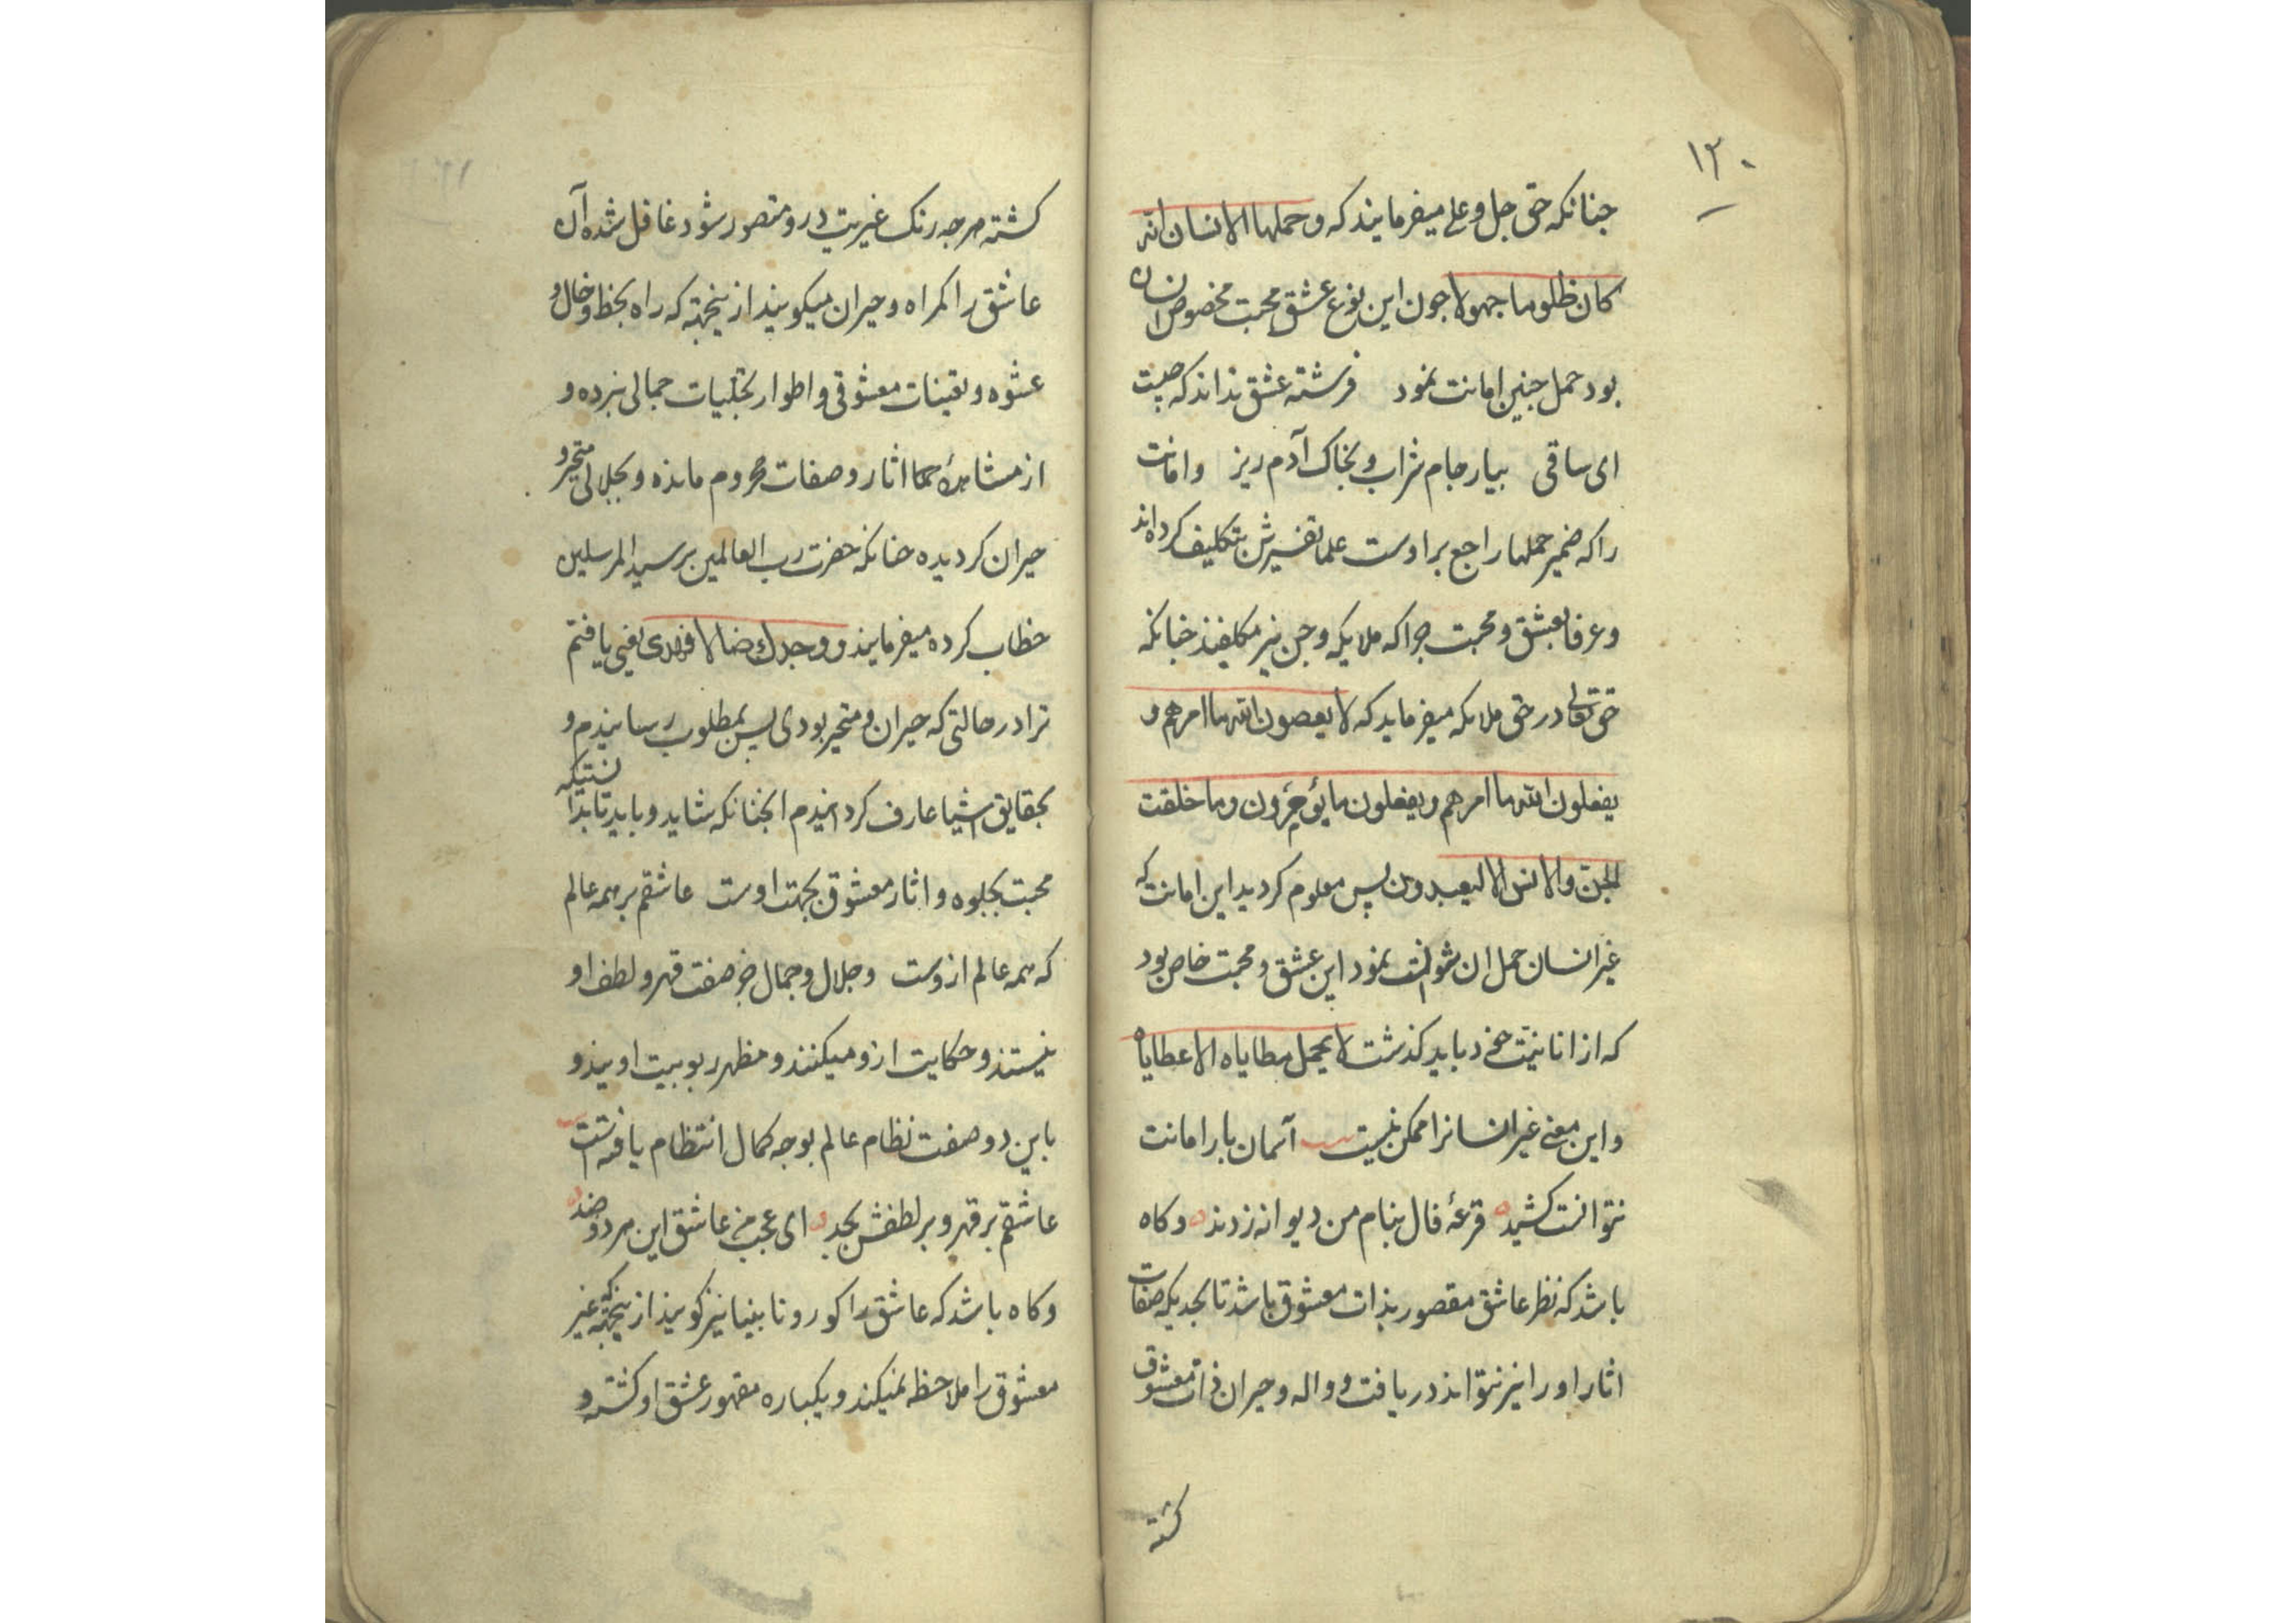 ۱۲۰
جنانکه حق جل وعلی میفرمایند که وحملها الانسان انه
کان ظلوما جهولا جون این نوع عشق محبت مخصوص انسان
بود حمل جنین امانت نمود فرشته عشق نداند که چیست
ای ساقی بیار جام شراب و بخاک آدم ریز وامانت
را که ضمیر حملها راجع بر اوست علما تفسیرش بتکلیف کرده‌اند
وعرفا بعشق و محبت جرا که ملایکه وجن نیز مکلفند جنانکه
حق تعالی در حق ملایکه میفرماید که لا یعصون الله ما امرهم و
یفعلون الله ما امرهم ویفعلون ما یؤمرون وما خلقت
الجن والانس الا لیعبدون پس معلوم کردید این امانت که
غیر انسان حمل ان نتوانست نمود این عشق و محبت خاص بود
که از انانیت خود باید کذشت لا یحمل مطایاه الا عطایاه
واین معنی غیر انسانرا ممکن نیست آسمان بار امانت
نتوانست کشید قرعهٔ فال بنام من دیوانه زدند وکاه
باشد که نظر عاشق مقصور بذات معشوق باشد تا بحدیکه صفات
اثار او را نیز نتواند دریافت و واله و حیران ذات معشوق
کشته
کشته هرجه رنک غیریت درو متصور شود غافل شده آن
عاشق را کمراه و حیران میکویند از ینجهته که راه بخط وخال و
عشوه و تعینات معشوقی و اطوار تجلیات جمالی نبرده و
از مشاهدهٔ اثار وصفات محروم مانده و بجلالی متحیر و
حیران کردیده جنانکه حضرت رب العالمین بر سید المرسلین
خطاب کرده میفرمایند و ووجدك ضالا فهدی یعنی یافتم
ترا در حالتی که حیران و متحیر بودی پس بمطلوب رسانیدم و
بحقایق اشیا عارف کردانیدم انجنانکه شاید و باید تا بدانستیکه
محبت بجلوه و اثار معشوق بجهت اوست عاشقم بر همه عالم
که همه عالم ازوست وجلال وجمال جز صفت قهر و لطف او
نیستند و حکایت ازو میکنند و مظهر ربوبیت اویند و
باین دو صفت نظام عالم بوجه کمال انتظام یافته است
عاشقم بر قهر و بر لطفش بجد ای عجب من عاشق این هر دو ضد
وکاه باشد که عاشق را کور و نابینا نیز کویند از ینجهته که غیر
معشوق را ملاحظه نمیکند و یکباره مقهور عشق او کشته و